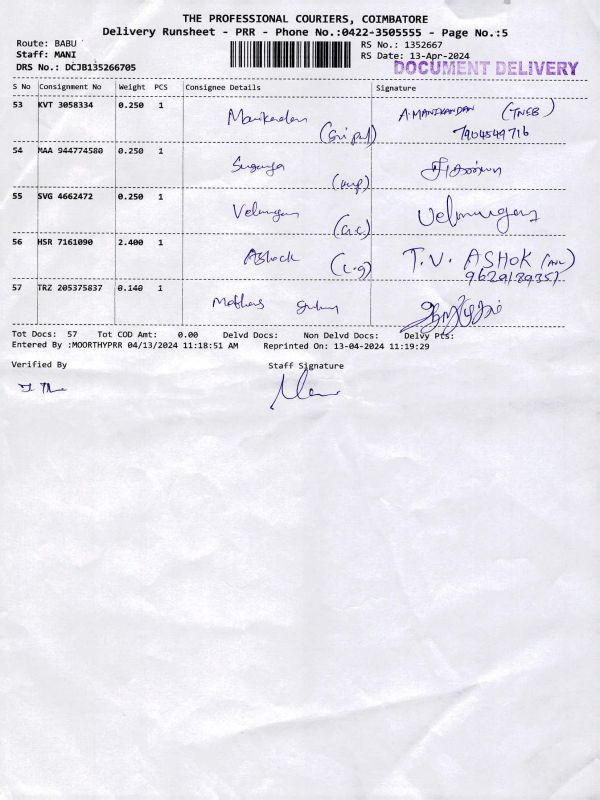 THE PROFESSIONAL COURIERS, COIMBATORE
Delivery Runsheet - PRR - Phone No.:0422-3505555 - Page No.:5
Route: BABU RS No.: 1352667
Staff: MANI RS Date: 13-Apr-2024
DRS No.: DCJB135266705 DOCUMENT DELIVERY
S No Consignment No Weight PCS Consignee Details Signature
53 KVT 3058334 0.250 1 Manikandan A.MANIKANDAN (TNEB)
7904549716
54 MAA 944774580 0.250 1 Suganya
55 SVG 4662472 0.250 1 Velmurugan Velmurugan
56 HSR 7161090 2.400 1 Ashock T.V. ASHOK
(L.g) 9629189357
57 TRZ 205375837 0.140 1
Tot Docs: 57 Tot COD Amt: 0.00 Delvd Docs: Non Delvd Docs: Delvy Pts:
Entered By :MOORTHYPRR 04/13/2024 11:18:51 AM Reprinted On: 13-04-2024 11:19:29
Verified By Staff Signature